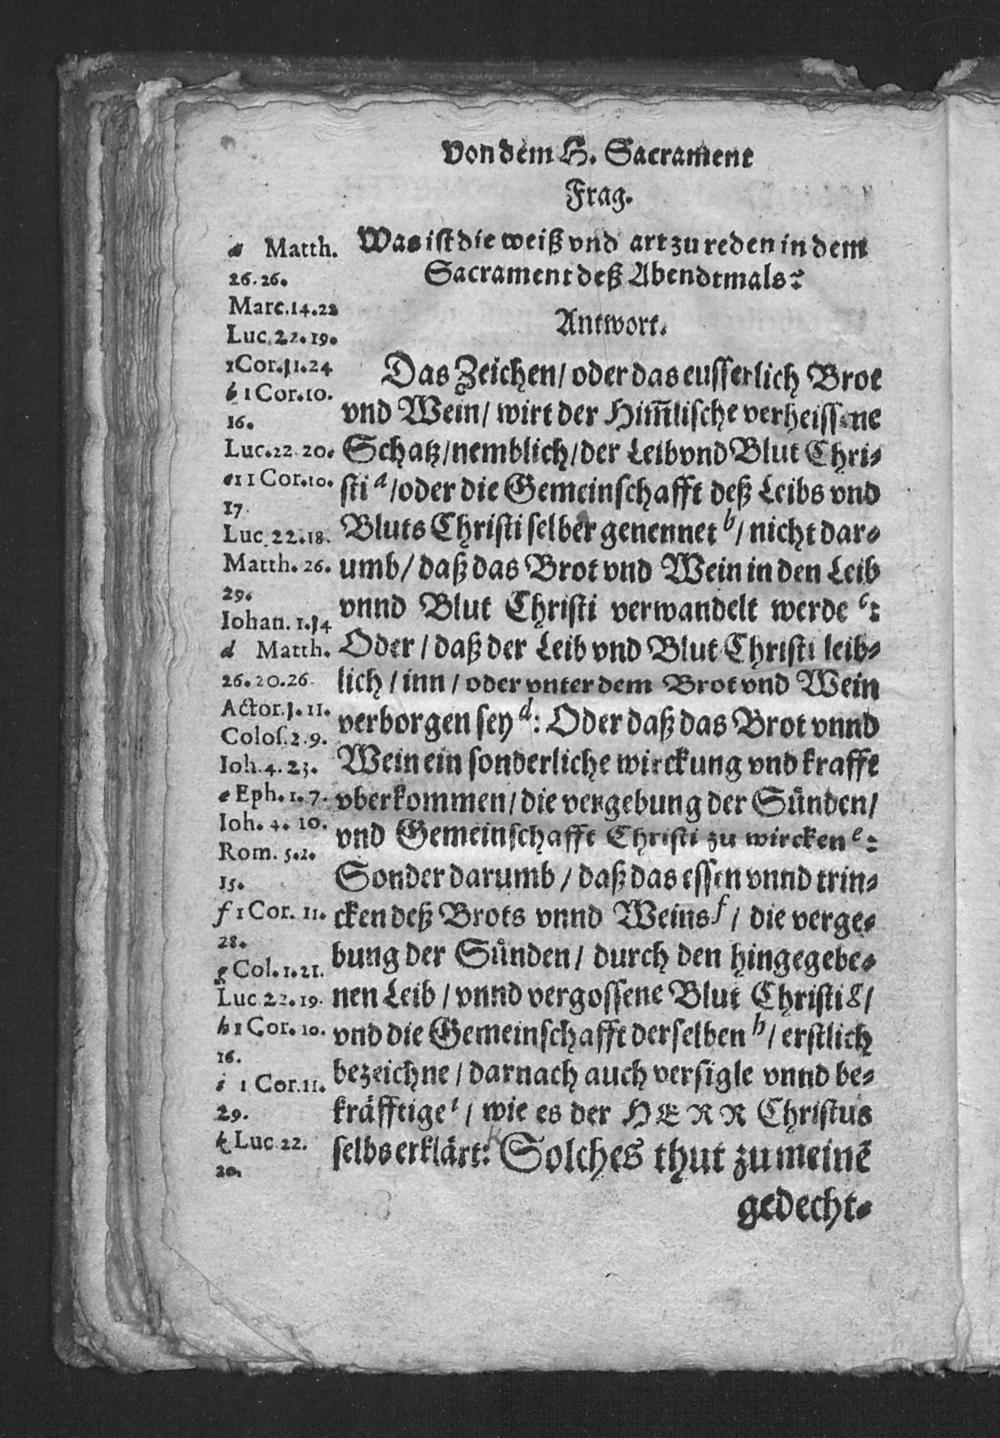 Von dem H. Sacrament
Frag.
Was ist die weiß vnd art zu reden in dem
Sacrament deß Abendtmals?
Antwort.
Das Zeichen/ oder das eusserlich Brot
vnd Wein/ wirt der Him̄lische verheissene
Schatz/ nemblich/ der Leib vnd Blut Chri-
sti a/ oder die Gemeinschafft deß Leibs vnd
Bluts Christi selber genennet b/ nicht dar-
umb/ daß das Brot vnd Wein in den Leib
vnnd Blut Christi verwandelt werde c:
Oder/ daß der Leib vnd Blut Christi leib-
lich/ inn/ oder vnter dem Brot vnd Wein
verborgen sey d: Oder daß das Brot vnnd
Wein ein sonderliche wirckung vnd krafft
vberkommen/ die vergebung der Sünden/
vnd Gemeinschafft Christi zu wircken e:
Sonder darumb/ daß das essen vnnd trin-
cken deß Brots vnnd Weins f/ die verge-
bung der Sünden/ durch den hingegebe-
nen Leib/ vnnd vergossene Blut Christi g/
vnd die Gemeinschafft derselben h/ erstlich
bezeichne/ darnach auch versigle vnnd be-
kräfftige i/ wie es der HERR Christus
selbs erklärt: k Solches thut zu meinē
gedecht-
a Matth.
26.26.
Marc.14.22
Luc.22.19.
1Cor.11.24
b 1Cor.10.
16.
Luc.22 20.
c1 1Cor.10.
17.
Luc.22.18.
Matth. 26.
29.
Iohan. 1.14
d Matth.
26.20.26
Actor.1.11.
Colos.2.9.
Ioh.4.23.
e Eph.1.7.
Ioh. 4. 10.
Rom. 5.2.
15.
f 1Cor. 11.
28.
g Col.1.21.
Luc 22.19.
h 1Cor.10.
16.
i 1 Cor.11.
29.
k Luc.22.
20.